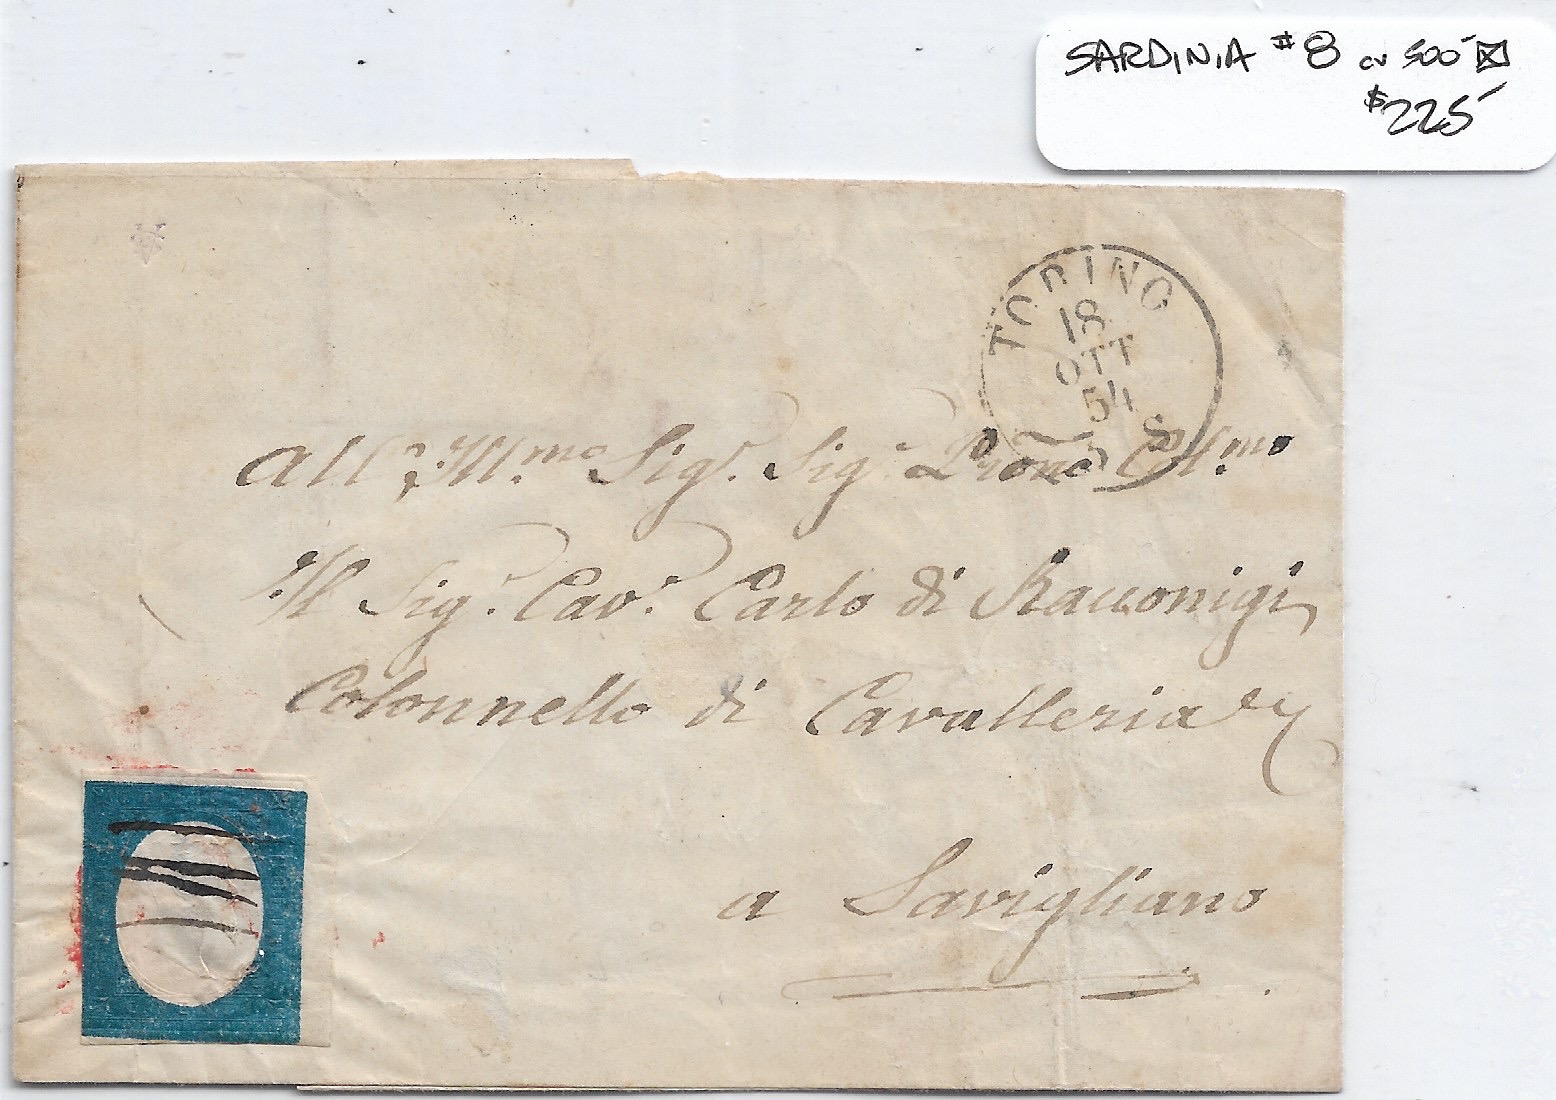 SARDINIA #8 CV 500
$225
TORINO
18
OTT
54
S
All' Ill.mo Sig.r Sig.r Prone Col.mo
Il Sig.r Cav.r Carlo di Racconigi
Colonnello di Cavalleria
a Savigliano